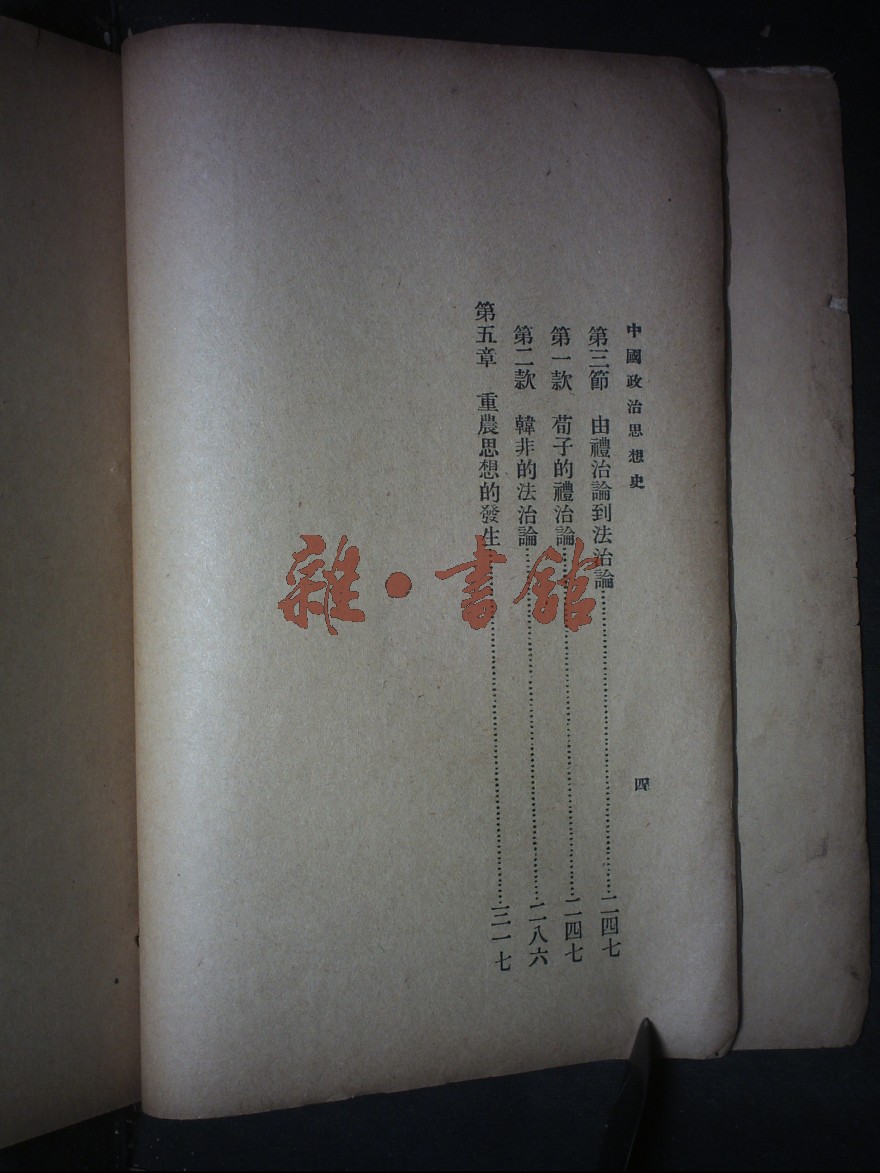 中國政治思想史
四
第三節　由禮治論到法治論…………二四七
第一款　荀子的禮治論…………二四七
第二款　韓非的法治論…………二八六
第五章　重農思想的發生…………三一七
雜·書館